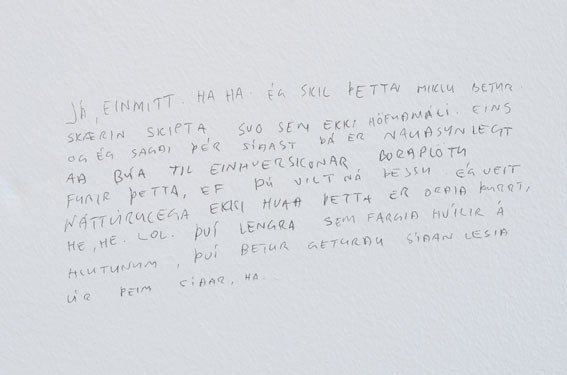 JÁ, EINMITT. HA HA. ÉG SKIL ÞETTA MIKLU BETUR.
SKÆRIN SKIPTA SVO SEM EKKI HÖFUÐMÁLI. EINS
OG ÉG SAGÐI ÞÉR SÍÐAST ÞÁ ER NAUÐSYNLEGT
AÐ BÚA TIL EINHVERSKONAR BORÐPLÖTU
FYRIR ÞETTA, EF ÞÚ VILT NÁ ÞESSU. ÉG VEIT
NÁTTÚRULEGA EKKI HVAÐ ÞETTA ER ORÐIÐ ÞURRT,
HE, HE. LOL. ÞVÍ LENGRA SEM FARGIÐ HVÍLIR Á
HLUTUNUM, ÞVÍ BETUR GETURÐU SÍÐAN LESIÐ
ÚR ÞEIM SÍÐAR, HA.